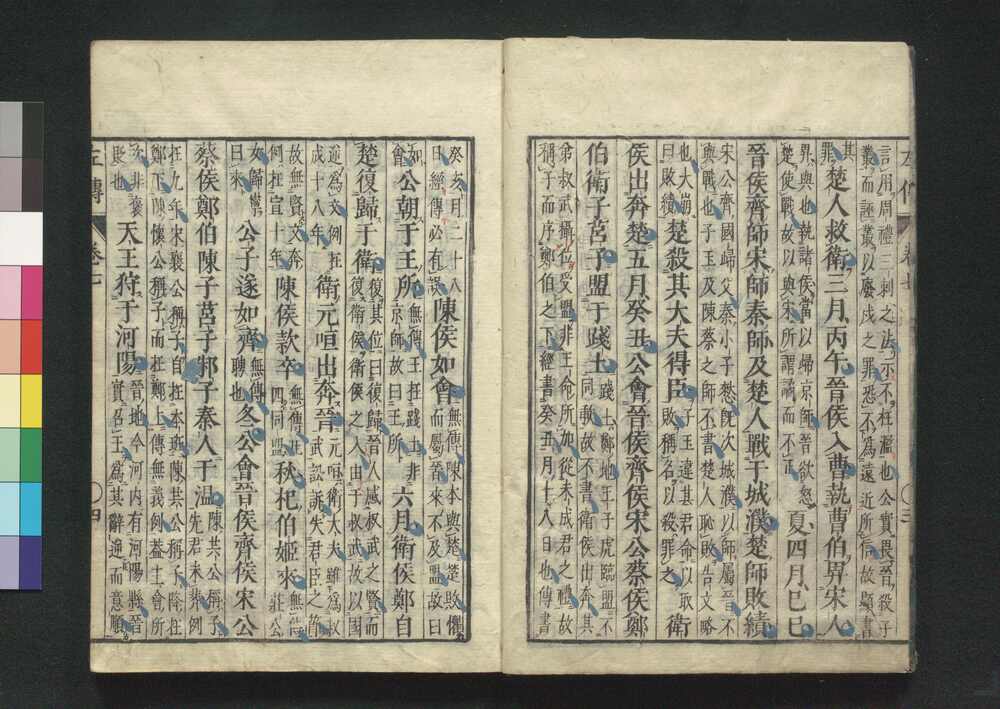 言用周禮三刺之法示不枉濫也公實畏晉殺子
叢而誣叢以廢戍之罪恐不為遠近所信故顯書
其罪楚人救衛三月丙午晉侯入曹執曹伯畀宋人
畀與也執諸侯當以歸京師晉欲怒
楚使戰故以與宋所謂譎而不正
夏四月己巳
晉侯齊師宋師秦師及楚人戰于城濮楚師敗績
宋公齊國歸父秦小子憖既次城濮以師屬晉不
與戰也子玉及陳蔡之師不書楚人恥敗告文略
也大崩
曰敗績
楚殺其大夫得臣
子玉違其君命以取
敗稱名以殺罪之
衛
侯出奔楚五月癸丑公會晉侯齊侯宋公蔡侯鄭
伯衛子莒子盟于踐土
踐土鄭地王子虎臨盟不
同歃故不書衛侯出奔其
弟叔武攝位受盟非王命所加從未成君之禮故
稱子而序鄭伯之下經書癸丑月十八日也傳書
癸亥月二十八
日經傳必有誤
陳侯如會
無傳陳本與楚楚敗懼
而屬晉來不及盟故曰
如會
公朝于王所
無傳王在踐土非
京師故曰王所
六月衛侯鄭自
楚復歸于衛
復其位曰復歸晉人感叔武之賢而
復衛侯衛侯之入由于叔武故以国
逆為文例在
成十八年
衛元咺出奔晉
元咺衛大夫雖為叔
武訟訴失君臣之節
故無賢文奔
例在宣十年
陳侯款卒
無傳凡
四同盟
秋杞伯姬來
無傳
莊公
女歸寧
曰來
公子遂如齊
無傳
聘也
冬公會晉侯齊侯宋公
蔡侯鄭伯陳子莒子邾子秦人于溫
陳共公稱子
先君未葬例
在九年宋襄公稱子自在本班陳共公稱子降在
鄭下陳懷公稱子而在鄭上傳無義例蓋主會所
次非褒
貶也
天王狩于河陽
晉地今河內有河陽縣晉
實召王為其辭逆而意順
左傳 卷七 四